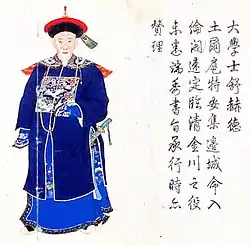 大學士舒赫德
土爾扈特安集邊城命入
綸閣逮定臨清金川之役
未悉端委書旨承行時亦
贊理